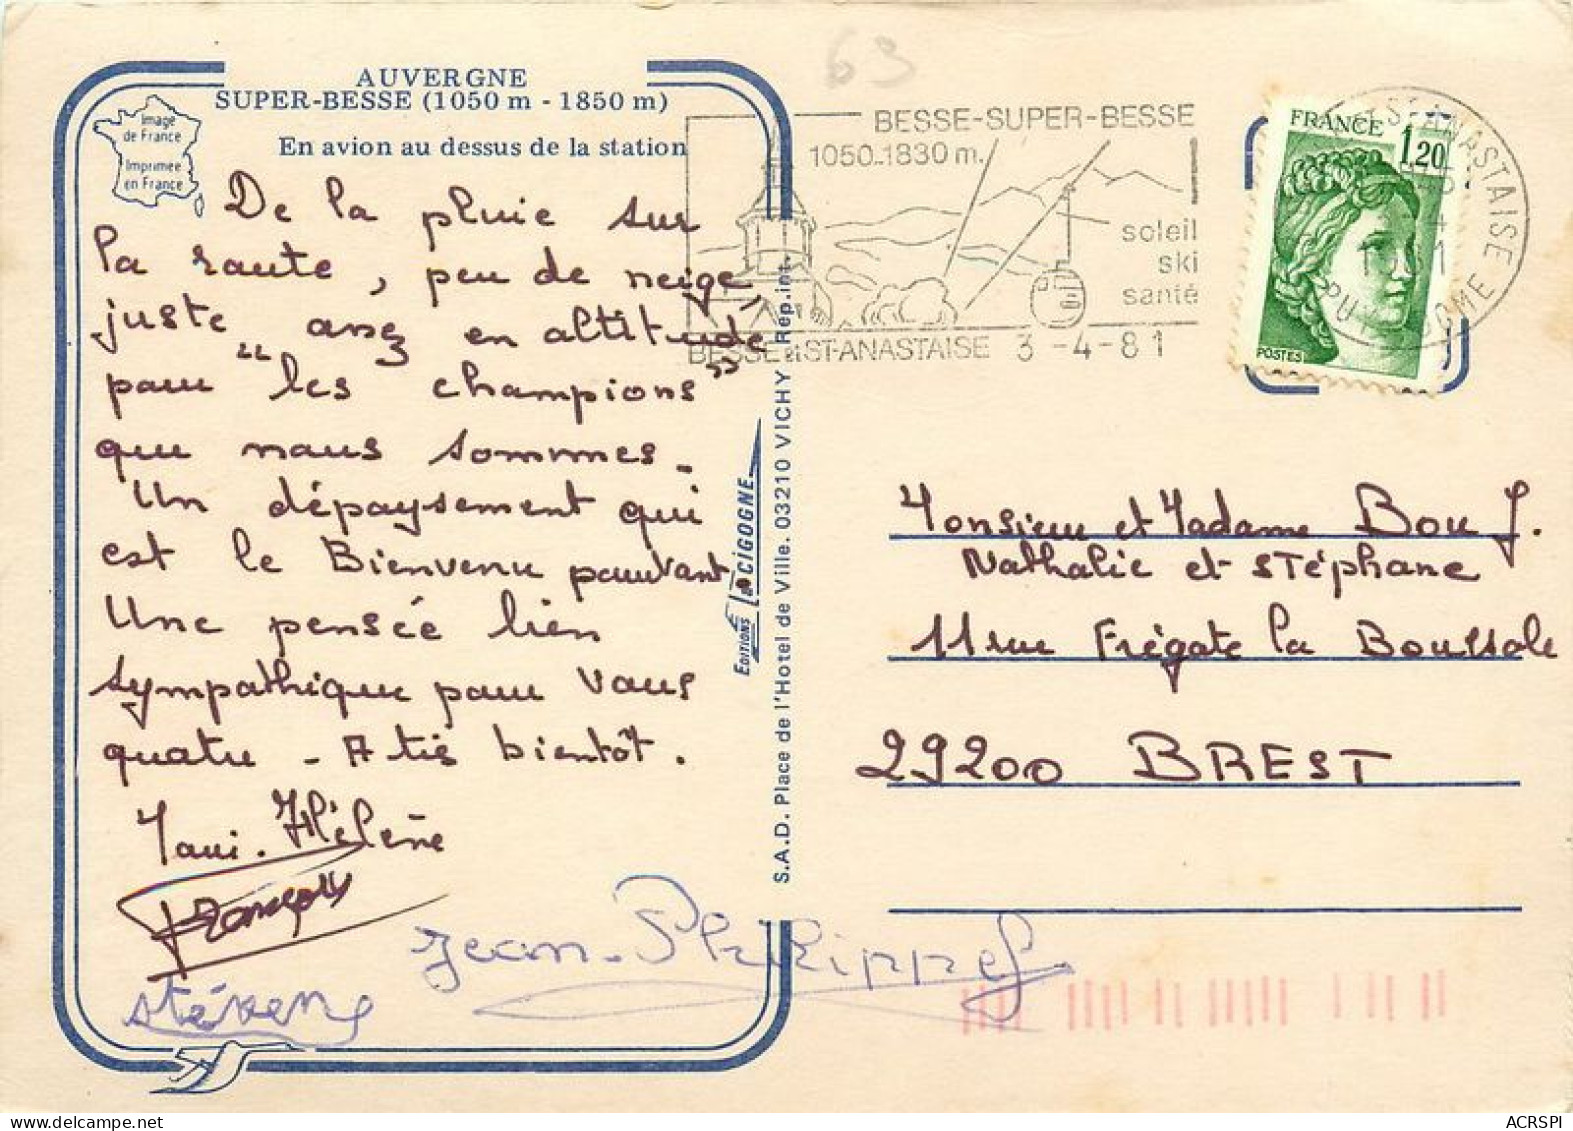 63
AUVERGNE
SUPER-BESSE (1050 m - 1850 m)
En avion au dessus de la station
Image
de France
Imprimée
en France
De la pluie sur
la route, peu de neige,
juste assez en altitude
pour "les champions"
que nous sommes.
Un dépaysement qui
est le Bienvenu pourtant
Une pensée bien
sympathique pour vous
quatre - A très bientôt.
Marie-Hélène
François
Jean-Philippe
stéven
EDITIONS LA CIGOGNE
S.A.D. Place de l'Hôtel de Ville. 03210 VICHY Rep.int.
BESSE-SUPER-BESSE
1050-1830 m.
soleil
ski
santé
BESSE et ST-ANASTAISE 3-4-81
FRANCE
1,20
POSTES
ST ANASTAISE
PUY DOME
Monsieur et Madame Bou J.
Nathalie et Stéphane
11 rue Frégate la Boussole
29200 BREST
ACRSPI